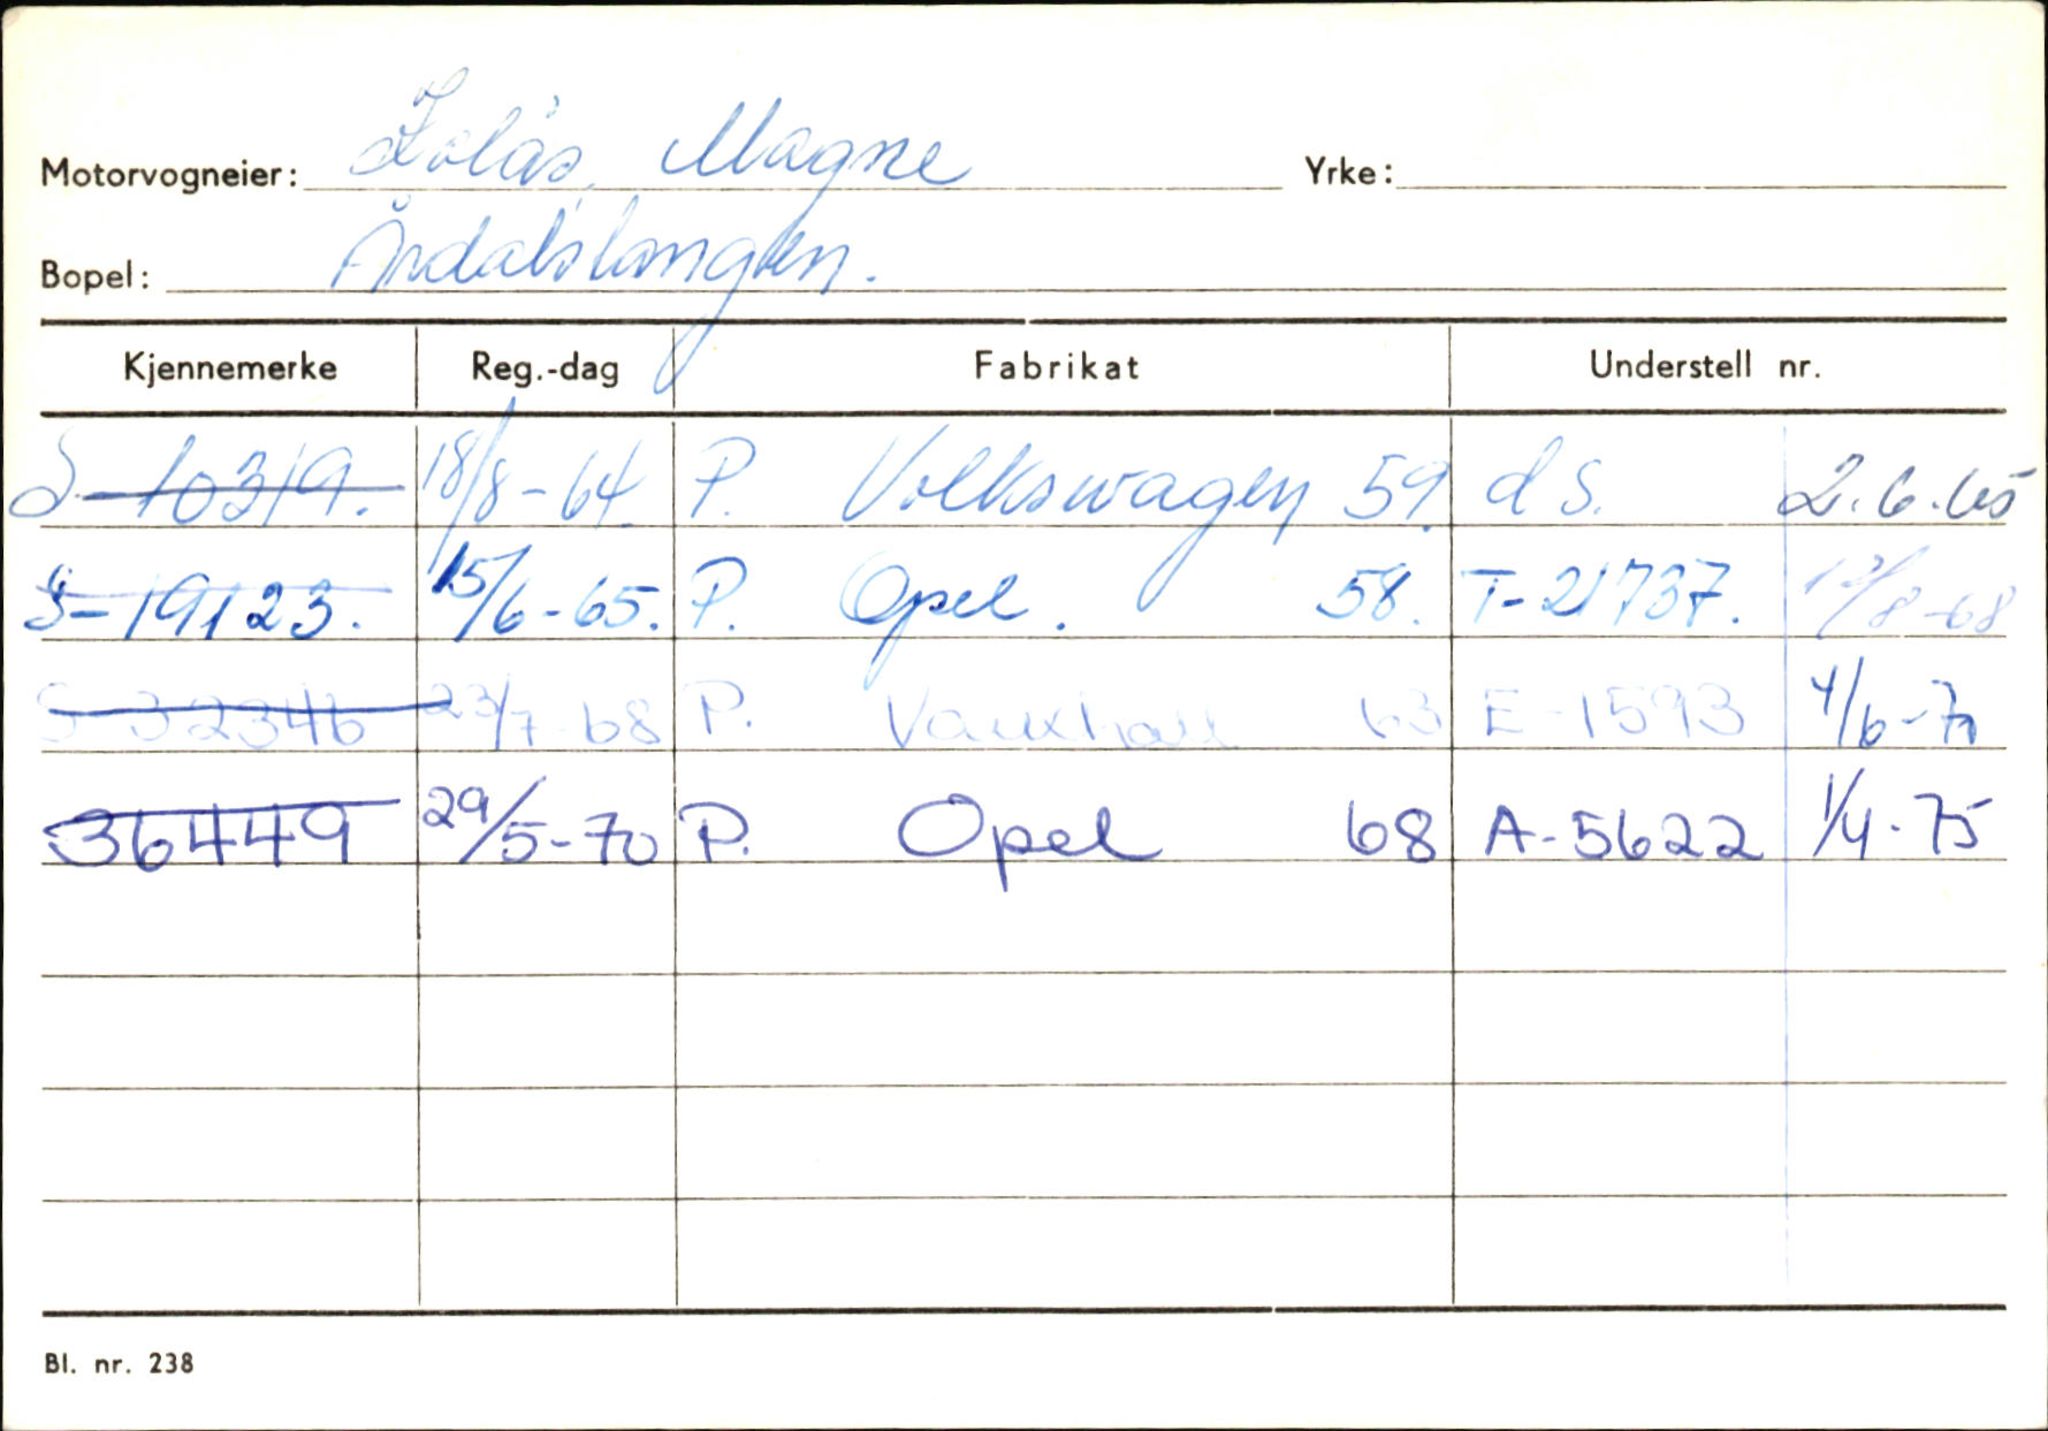 Motorvogneier: Magne Yrke:
Bopel: Årdalstangen.
Kjennemerke Reg.-dag Fabrikat Understell nr.
S-10319. 18/8-64. P. Volkswagen 59. d S. 2.6.65
S-19123. 15/6-65. P. Opel. 58. T-21737. 13/8-68
S-32346 23/7-68 P. Vauxhall 63 E-1593 4/6-70
36449 29/5-70 P. Opel 68 A-5622 1/4-75
Bl. nr. 238